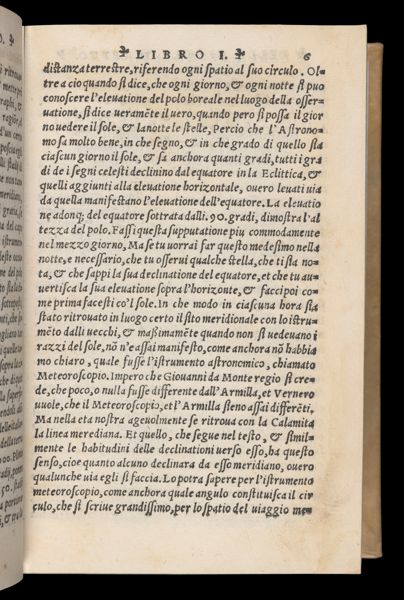 LIBRO I. 6
distanza terrestre, riferendo ogni spatio al suo circulo. Ol=
tre a cio quando si dice, che ogni giorno, & ogni notte si puo
conoscere l'eleuatione del polo boreale nel luogo della osser=
uatione, si dice ueramẽte il uero, quando pero si possa il gior
no uedere il sole, & la notte le stelle, Percio che l'Astrono=
mo sa molto bene, in che segno, & in che grado di quello stia
ciascun giorno il sole, & sa anchora quanti gradi, tutti i gra
di de i segni celesti declinano dal equatore in la Eclittica, &
quelli aggiunti alla eleuatione horizontale, ouero leuati uia
da quella manifestano l'eleuatione dell'equatore. La eleuatio
ne adonq; del equatore sottratta dalli. 90. gradi, dimostra l'al
tezza del polo. Fassi questa supputatione piu commodamente
nel mezzo giorno, Ma se tu uorrai far questo medesimo nella
notte, e necessario, che tu osserui qualche stella, che ti sia no=
ta, & che sappi la sua declinatione del equatore, et che tu au=
uertisca la sua eleuatione sopra l'horizonte, & facci poi co=
me prima facesti co'l sole. In che modo in ciascuna hora sia
stato ritrouato in luogo certo il sito meridionale con lo istru=
mẽto dalli uecchi, & maßimamẽte quando non si uedeuano i
razzi del sole, nõ n'e assai manifesto, come anchora nõ habbia
mo chiaro, quale fusse l'istrumento astronomico, chiamato
Meteoroscopio. Impero che Giouanni da Monte regio si cre=
de, che poco, o nulla fusse differente dall'Armilla, et Vernero
uuole, che il Meteoroscopio, et l'Armilla sieno assai differẽti.
Ma nella eta nostra ageuolmente se ritroua con la Calamita
la linea merediana. Et quello, che segue nel testo, & simil=
mente le habitudini delle declinationi uerso esso, ha questo
senso, cioe quanto alcuno declinara da esso meridiano, ouero
qualunche uia egli si faccia. Lo potra sapere per l'istrumento
meteoroscopio, come anchora quale angulo constituisca il cir
culo, che si scriue grandissimo, per lo spatio del uiaggio me=